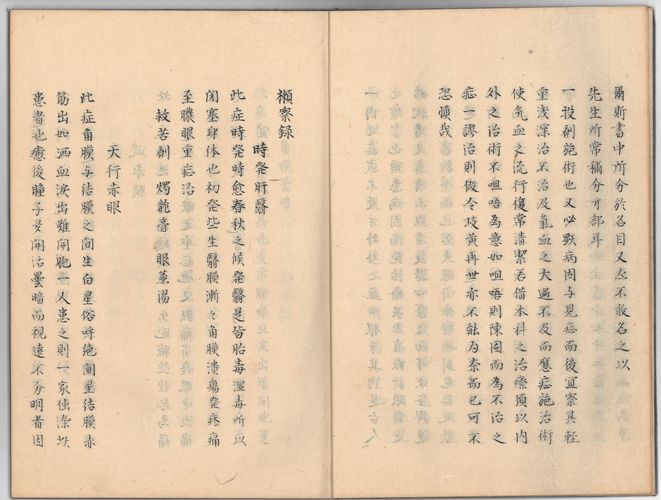 爾斯書中所分於名目又亦不敢名之以
先生所常稱分才部耳
一投剤施術也又必默病因与見症而後宜察其軽
重浅深治不治及氣血之大過不及而應症施治術
使気血之流行復常清潔若借本科之治療須以内
外之治術不咀唔為意如咀唔則陳固而為不治之
症一謬治則縦令歧黄再世亦不能為奈而已可不
恐慎哉
檨察録
時発肝翳
此症時発時愈春秋之候発翳是皆胎毒湿毒所以
閉塞身体也初発些生翳膜漸々角膜潰瘍発疼痛
至膿眼重症治
救苦剤 燭龍膏 眼蒸湯
天行赤眼
此症角膜与结膜之间生白星俗呼绝间星结膜赤
筋出如洒血淚出難開胞一人患之則一家伝染以
患者也癒後瞳子妄開沽曇暗而視遠不分明者因